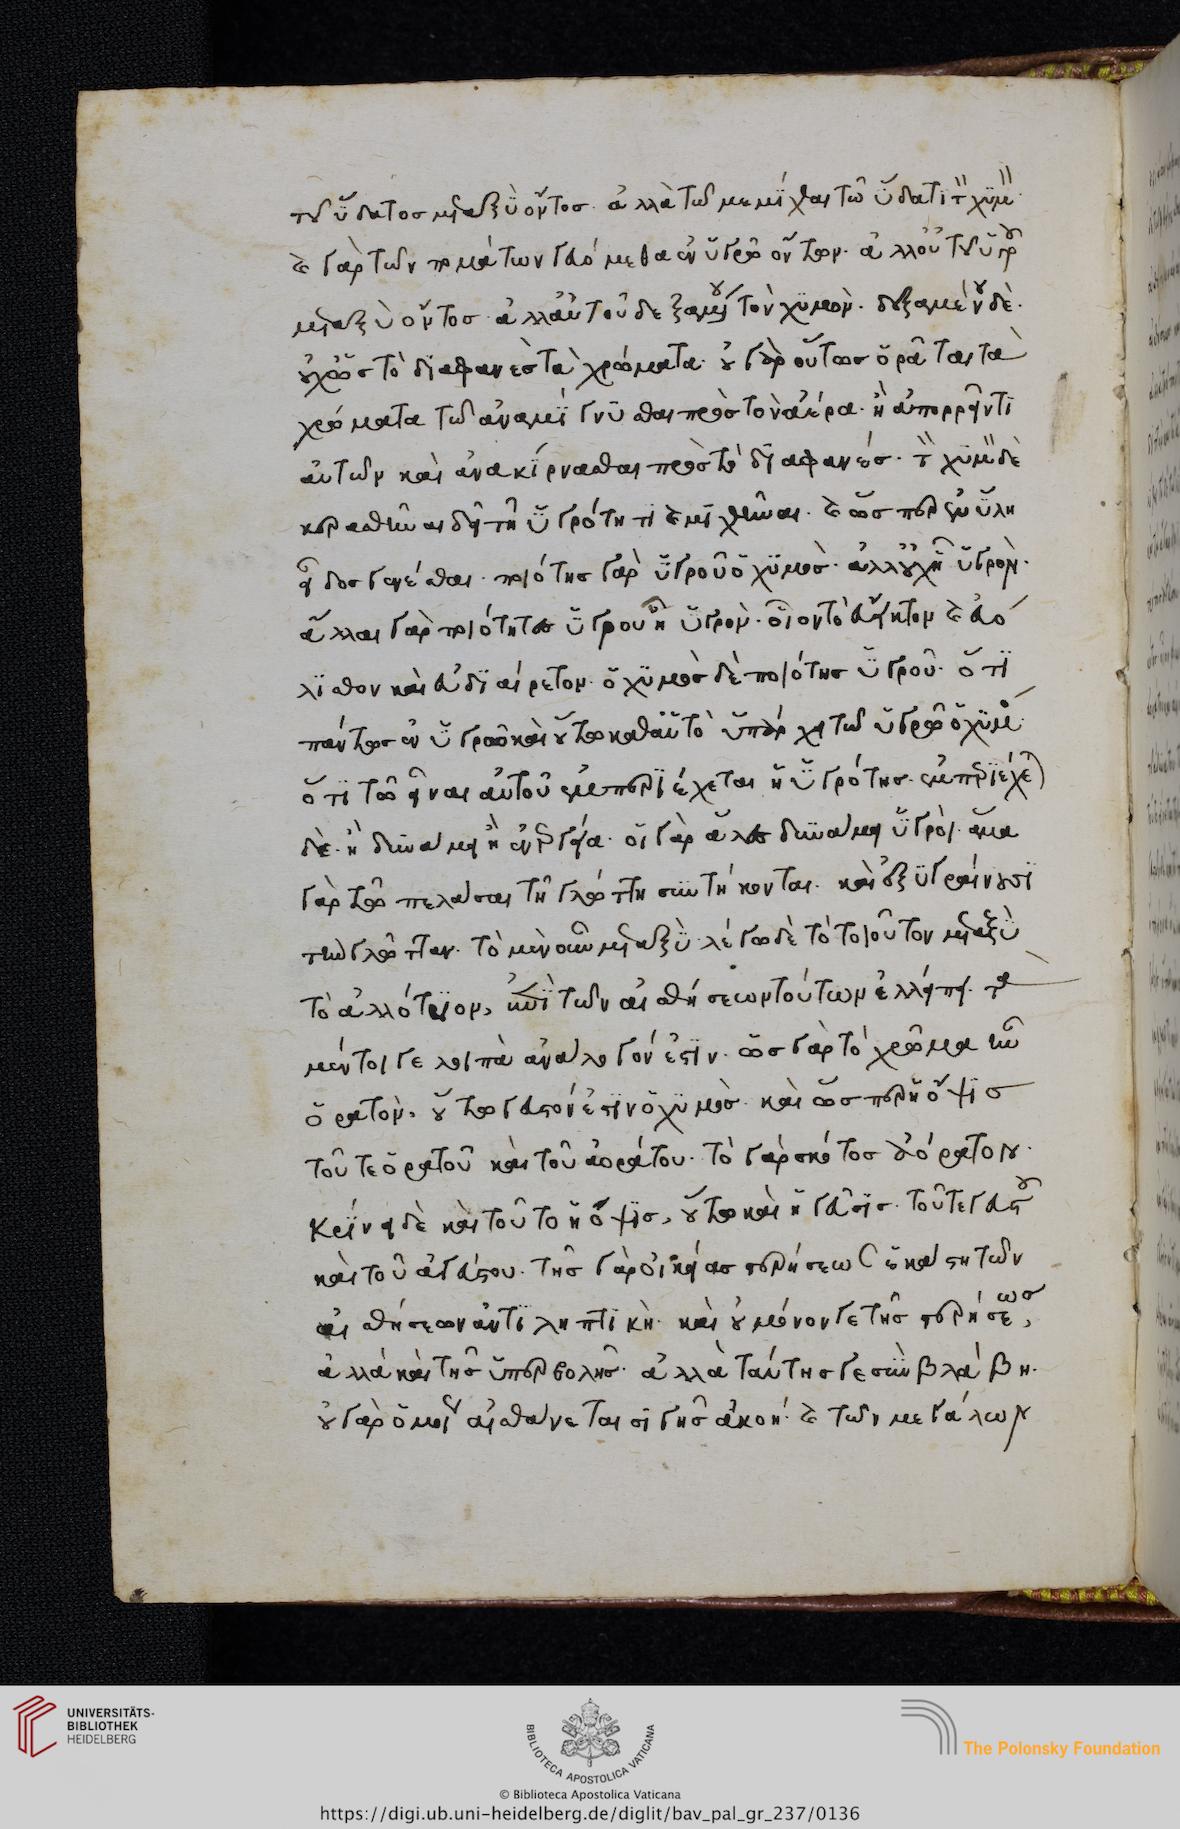 τοῦ ὕδατος μεταξὺ ὄντος. ἀλλὰ τῶ μεμίχθαι τῶ ὕδατι τὸν χυμόν.
καὶ γὰρ τῶν πομάτων γευόμεθα ἐν ὑγρῶ ὄντων. ἀλλ' οὐ τοῦ ὑγροῦ
μεταξὺ ὄντος ἀλλ' αὐτοῦ δεξαμένου τὸν χυμόν. δεξαμένου δὲ.
οὐχ ὡς τὸ διαφανὲς τὰ χρώματα. οὐ γὰρ οὕτως ὁρᾶται τὰ
χρώματα τῶ ἀναμίγνυσθαι πρὸς τὸν ἀέρα. ἢ ἀπορρεῖν τι
αὐτῶν καὶ ἀνακίρνασθαι πρὸς τὸ διαφανές. τὸν χυμὸν δὲ
κερασθῆναι δεῖ τῆ ὑγρότητι καὶ μιχθῆναι. καὶ ὥσπερ ἐν ὕλη
εἶδος γενέσθαι. ποιότης γὰρ ὑγροῦ ὁ χυμὸς. ἀλλ' οὐχ ἧ ὑγρὸν.
ἄλλαι γὰρ ποιότητες ὑγροῦ ἧ ὑγρὸν. οἷον τὸ εὔεικτον καὶ εὐό
λισθον καὶ εὐδιαίρετον. ὁ χυμὸς δὲ ποιότης ὑγροῦ. ὅτι
πάντως ἐν ὑγρῶ καὶ οὕτω καθ' αὑτὸ ὑπάρχει τῶ ὑγρῶ ὁ χυμός.
ὅτι τῶ εἶναι αὐτοῦ ἐμπεριέχεται ἡ ὑγρότης. ἐμπεριέχεται
δὲ. ἢ δυνάμει ἢ ἐνεργεία. οἱ γὰρ ἅλες δυνάμει ὑγροί. ἅμα
γὰρ τῶ πελάσαι τῆ γλώττη συντήκονται. καὶ ἐξυγραίνουσι
τὴν γλῶτταν. τὸ μὲν οὖν μεταξὺ. λέγω δὲ τὸ τοιοῦτον μεταξὺ
τὸ ἀλλότριον, ἐπὶ τῶν αἰσθήσεων τούτων ἐλλείπει. τὰ
μέντοι γε λοιπὰ ἀνάλογόν ἐστιν. ὡς γὰρ τὸ χρῶμα ἦν
ὁρατὸν, οὕτω γευστόν ἐστιν ὁ χυμὸς. καὶ ὥσπερ ἡ ὄψις
τοῦ τε ὁρατοῦ καὶ τοῦ ἀοράτου. τὸ γὰρ σκότος ἀόρατον.
κρίνει δὲ καὶ τοῦτο ἡ ὄψις, οὕτω καὶ ἡ γεῦσις. τοῦ τε γευστοῦ
καὶ τοῦ ἀγεύστου. τῆς γὰρ οἰκείας στερήσεως ἑκάστη τῶν
αἰσθήσεων ἀντιληπτικὴ. καὶ οὐ μόνον γε τῆς στερήσεως,
ἀλλὰ καὶ τῆς ὑπερβολῆς. ἀλλὰ ταύτης γε σὺν βλάβη.
οὐ γὰρ ὁμοῦ αἰσθάνεται σιγῆς ἀκοή. καὶ τῶν μεγάλων
UNIVERSITÄTS-
BIBLIOTHEK
HEIDELBERG
BIBLIOTECA APOSTOLICA VATICANA
The Polonsky Foundation
© Biblioteca Apostolica Vaticana
https://digi.ub.uni-heidelberg.de/diglit/bav_pal_gr_237/0136